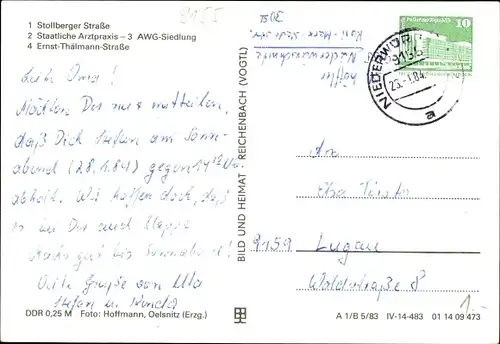 1 Stollberger Straße
2 Staatliche Arztpraxis – 3 AWG-Siedlung
4 Ernst-Thälmann-Straße
9155
Liebe Oma!
Möchten Dir nur mitteilen,
daß Dich Stefan am Sonn-
abend (28.1.84) gegen 14 Uhr
abholt. Wir hoffen doch, daß
es bei Dir auch klappt
bis Sonnabend!
Viele Grüße von
Stefan u. Kinder
DDR 0,25 M Foto: Hoffmann, Oelsnitz (Erzg.)
BILD UND HEIMAT REICHENBACH (VOGTL)
Niederwürschnitz
Karl-Marx-Siedl.
NIEDERWÜR
9155
25.-1.84
a
Palast der Republik
10
DDR
An
9159 Lugau
Waldstraße 8
1.-
A 1/B 5/83 IV-14-483 01 14 09 473